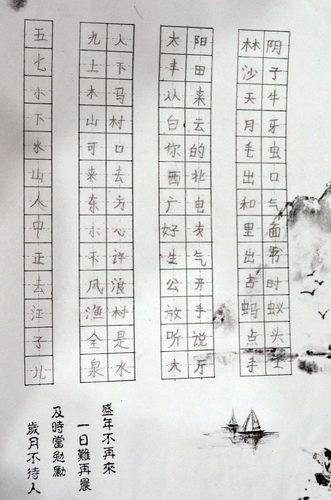 五 九人 太阳 林阴
七 土下 丰田 沙子
小 木马 从来 天牛
下 山村 白云 月牙
水 可口 你的 毛虫
山 来去 西北 出口
人 东方 广电 和气
中 小心 好 里面
正 不许 生气 出书
去 风浪 公开 古时
江 渔村 放手 蚂蚁
子 全是 听说 点头
儿 泉水 大厅 手
盛年不再來
一日難再晨
及時當勉勵
歲月不待人